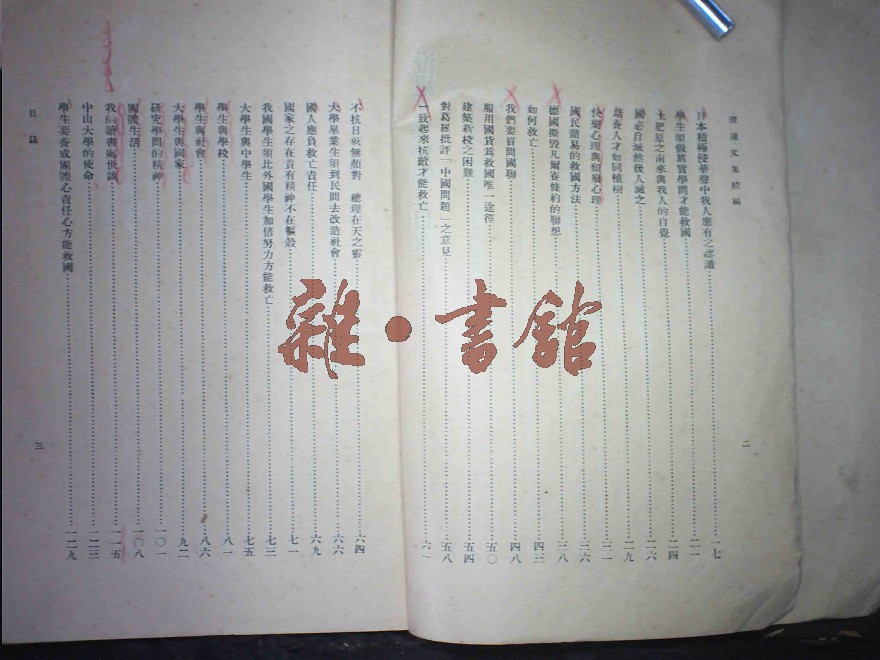 澄廬文集續編
日本積極侵華聲中我人應有之認識……一七
學生須做眞實學問才能救國……二一
土肥原之南來與我人的自覺……二四
國必自滅然後人滅之……二六
培養人才如同植樹……二九
心理與頹廢心理……三一
國民簡易的救國方法……三六
德國撕毀凡爾賽條約的聯想……三八
如何救亡……四三
我們要質問國聯……四八
服用國貨爲救國唯一途徑……五〇
建築新校之困難……五四
對葛羅批評「中國問題」之意見……五八
一致起來抗敵才能救亡……六一
二
不抗日就無顏對　總理在天之靈……六四
大學畢業生須到民間去改造社會……六六
國人應負救亡責任……六九
國家之存在貴有精神不在軀殼……七一
我國學生須比外國學生加倍努力方能救亡……七三
大學生與中學生……七五
學生與學校……八一
學生與社會……八六
大學生與國家……九二
研究學問的精神……一〇一
團體生活……一〇八
我的讀書處世談……一一五
中山大學的使命……一二三
學生要養成團體心責任心方能救國……一二九
目錄
三
雜·書館